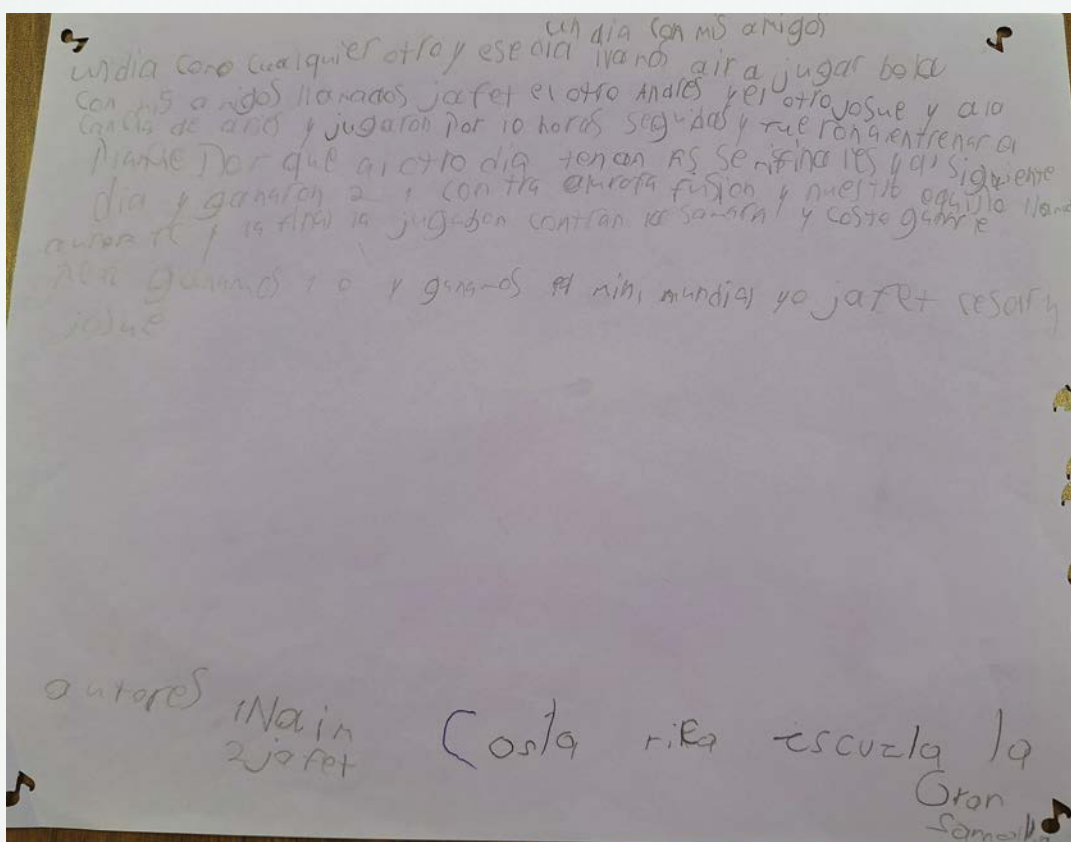 un dia con mis amigos
un dia como cualquier otro y ese dia ivamos air a jugar bola
con mis amigos llamados jafet el otro Andrés y el otro josue y ala
cancha de anes y jugaron por 10 horas seguidas y fueron a entrenar al
por que al otro dia tenan semifinales y al siguiente
dia y ganaron 2 1 contra aurora fusion y nuestro equipo llama
aurora fc y la final la jugabon contran y costo ganarle
pero ganamos 1 0 y ganamos el mini mundial yo jafet cesar y
josue
autores 1Nain
2jafet
Costa rika escuela la
Gran